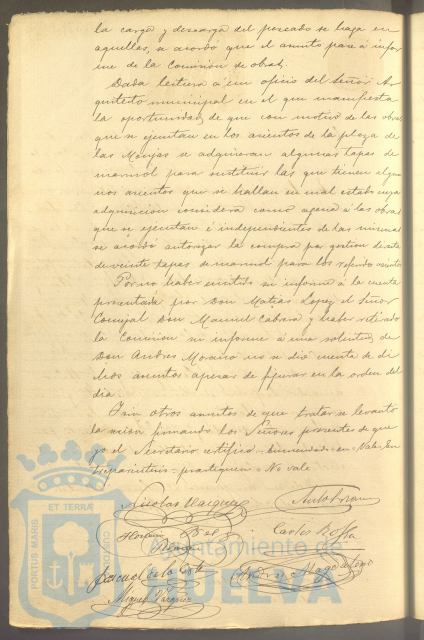 la carga y descarga del pescado se haga en
aquellas, se acordó que el asunto pase á infor
me de la Comisión de obras.
Dada lectura á un oficio del Señor Ar
quitecto municipal en el que manifiesta
la oportunidad de que con motivo de las obras
que se ejecutan en los asientos de la plaza de
las Monjas se adquieran algunas tapas de
marmol para sustituir las que tienen algu
nos asientos que se hallan en mal estado cuya
adquisición considera como agena á las obras
que se ejecutan é independientes de las mismas
se acordó autorizar la compra por gestión directa
de veinte tapas de marmol para los referidos asientos
Por no haber emitido su informe á la cuenta
presentada por Don Matias Lopez el Señor
Concejal Don Manuel Cabrera y haber retirado
la Comisión su informe á una solicitud de
Don Andres Moreiro no se dió cuenta de di
chos asuntos apesar de figurar en la orden del
dia.
Y sin otros asuntos de que tratar se levantó
la sesión firmando los Señores presentes de que
yo el Secretario certifico = = en = Vale = En
= practiquen = No vale
Nicolas Vazquez
Carlos
Miguel Vazquez
PORTUS MARIS
ET TERRÆ
CUSTODIA
Ayuntamiento de
HUELVA